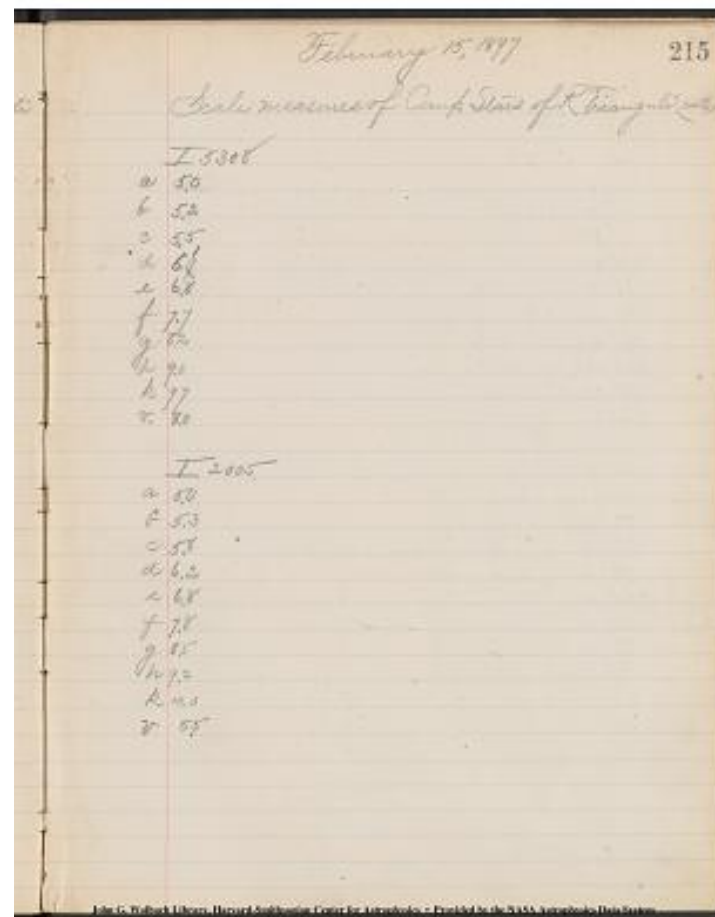 February 15, 1897
215
Scale measures of Comp. Stars of R Trianguli
I 5308
a 5.0
b 5.2
c 5.5
d 6.1
e 6.8
f 7.7
g 8.2
h 9.0
k 9.7
v. 8.0
I 2005
a 5.0
b 5.3
c 5.8
d 6.2
e 6.8
f 7.8
g 8.5
h 9.2
k 10.0
v 5.5
John G. Wolbach Library, Harvard-Smithsonian Center for Astrophysics • Provided by the NASA Astrophysics Data System